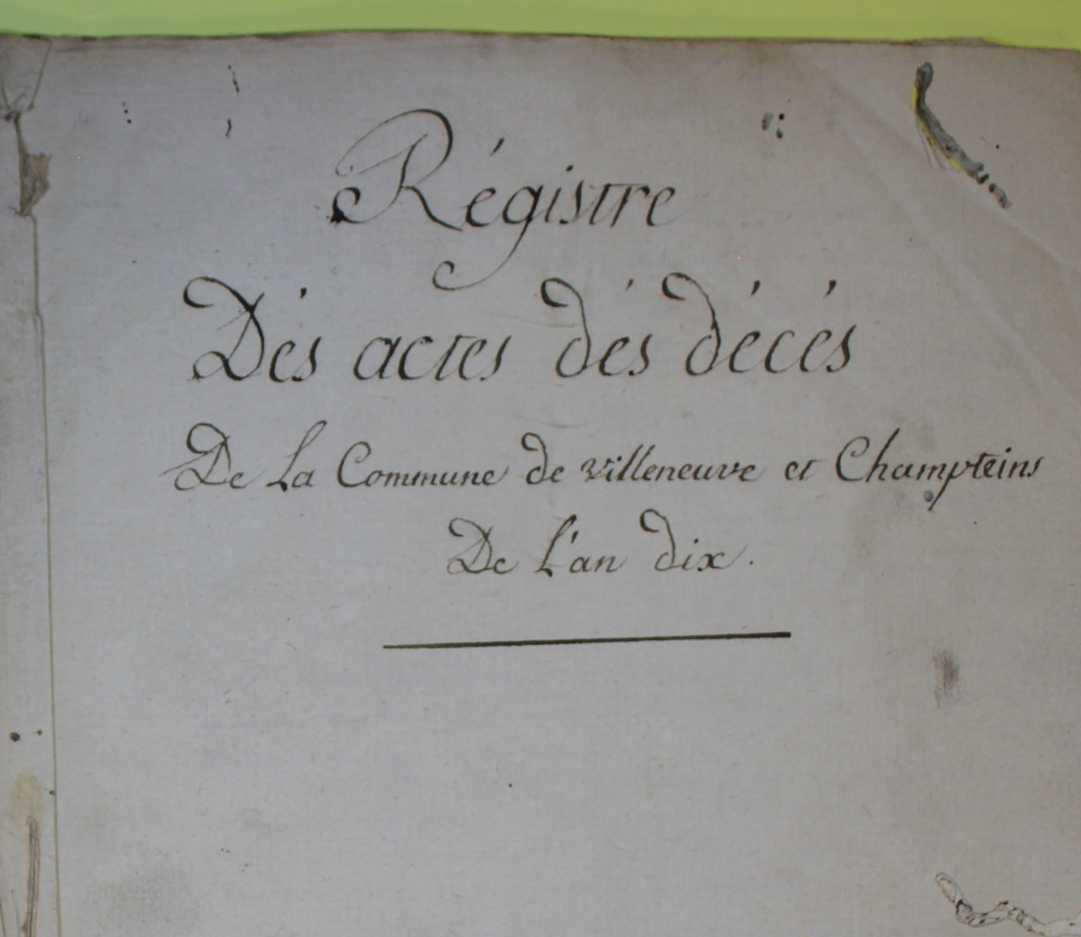 Régistre
Dés actes dés décés
De La Commune de villeneuve et Champteins
De L'an dix.